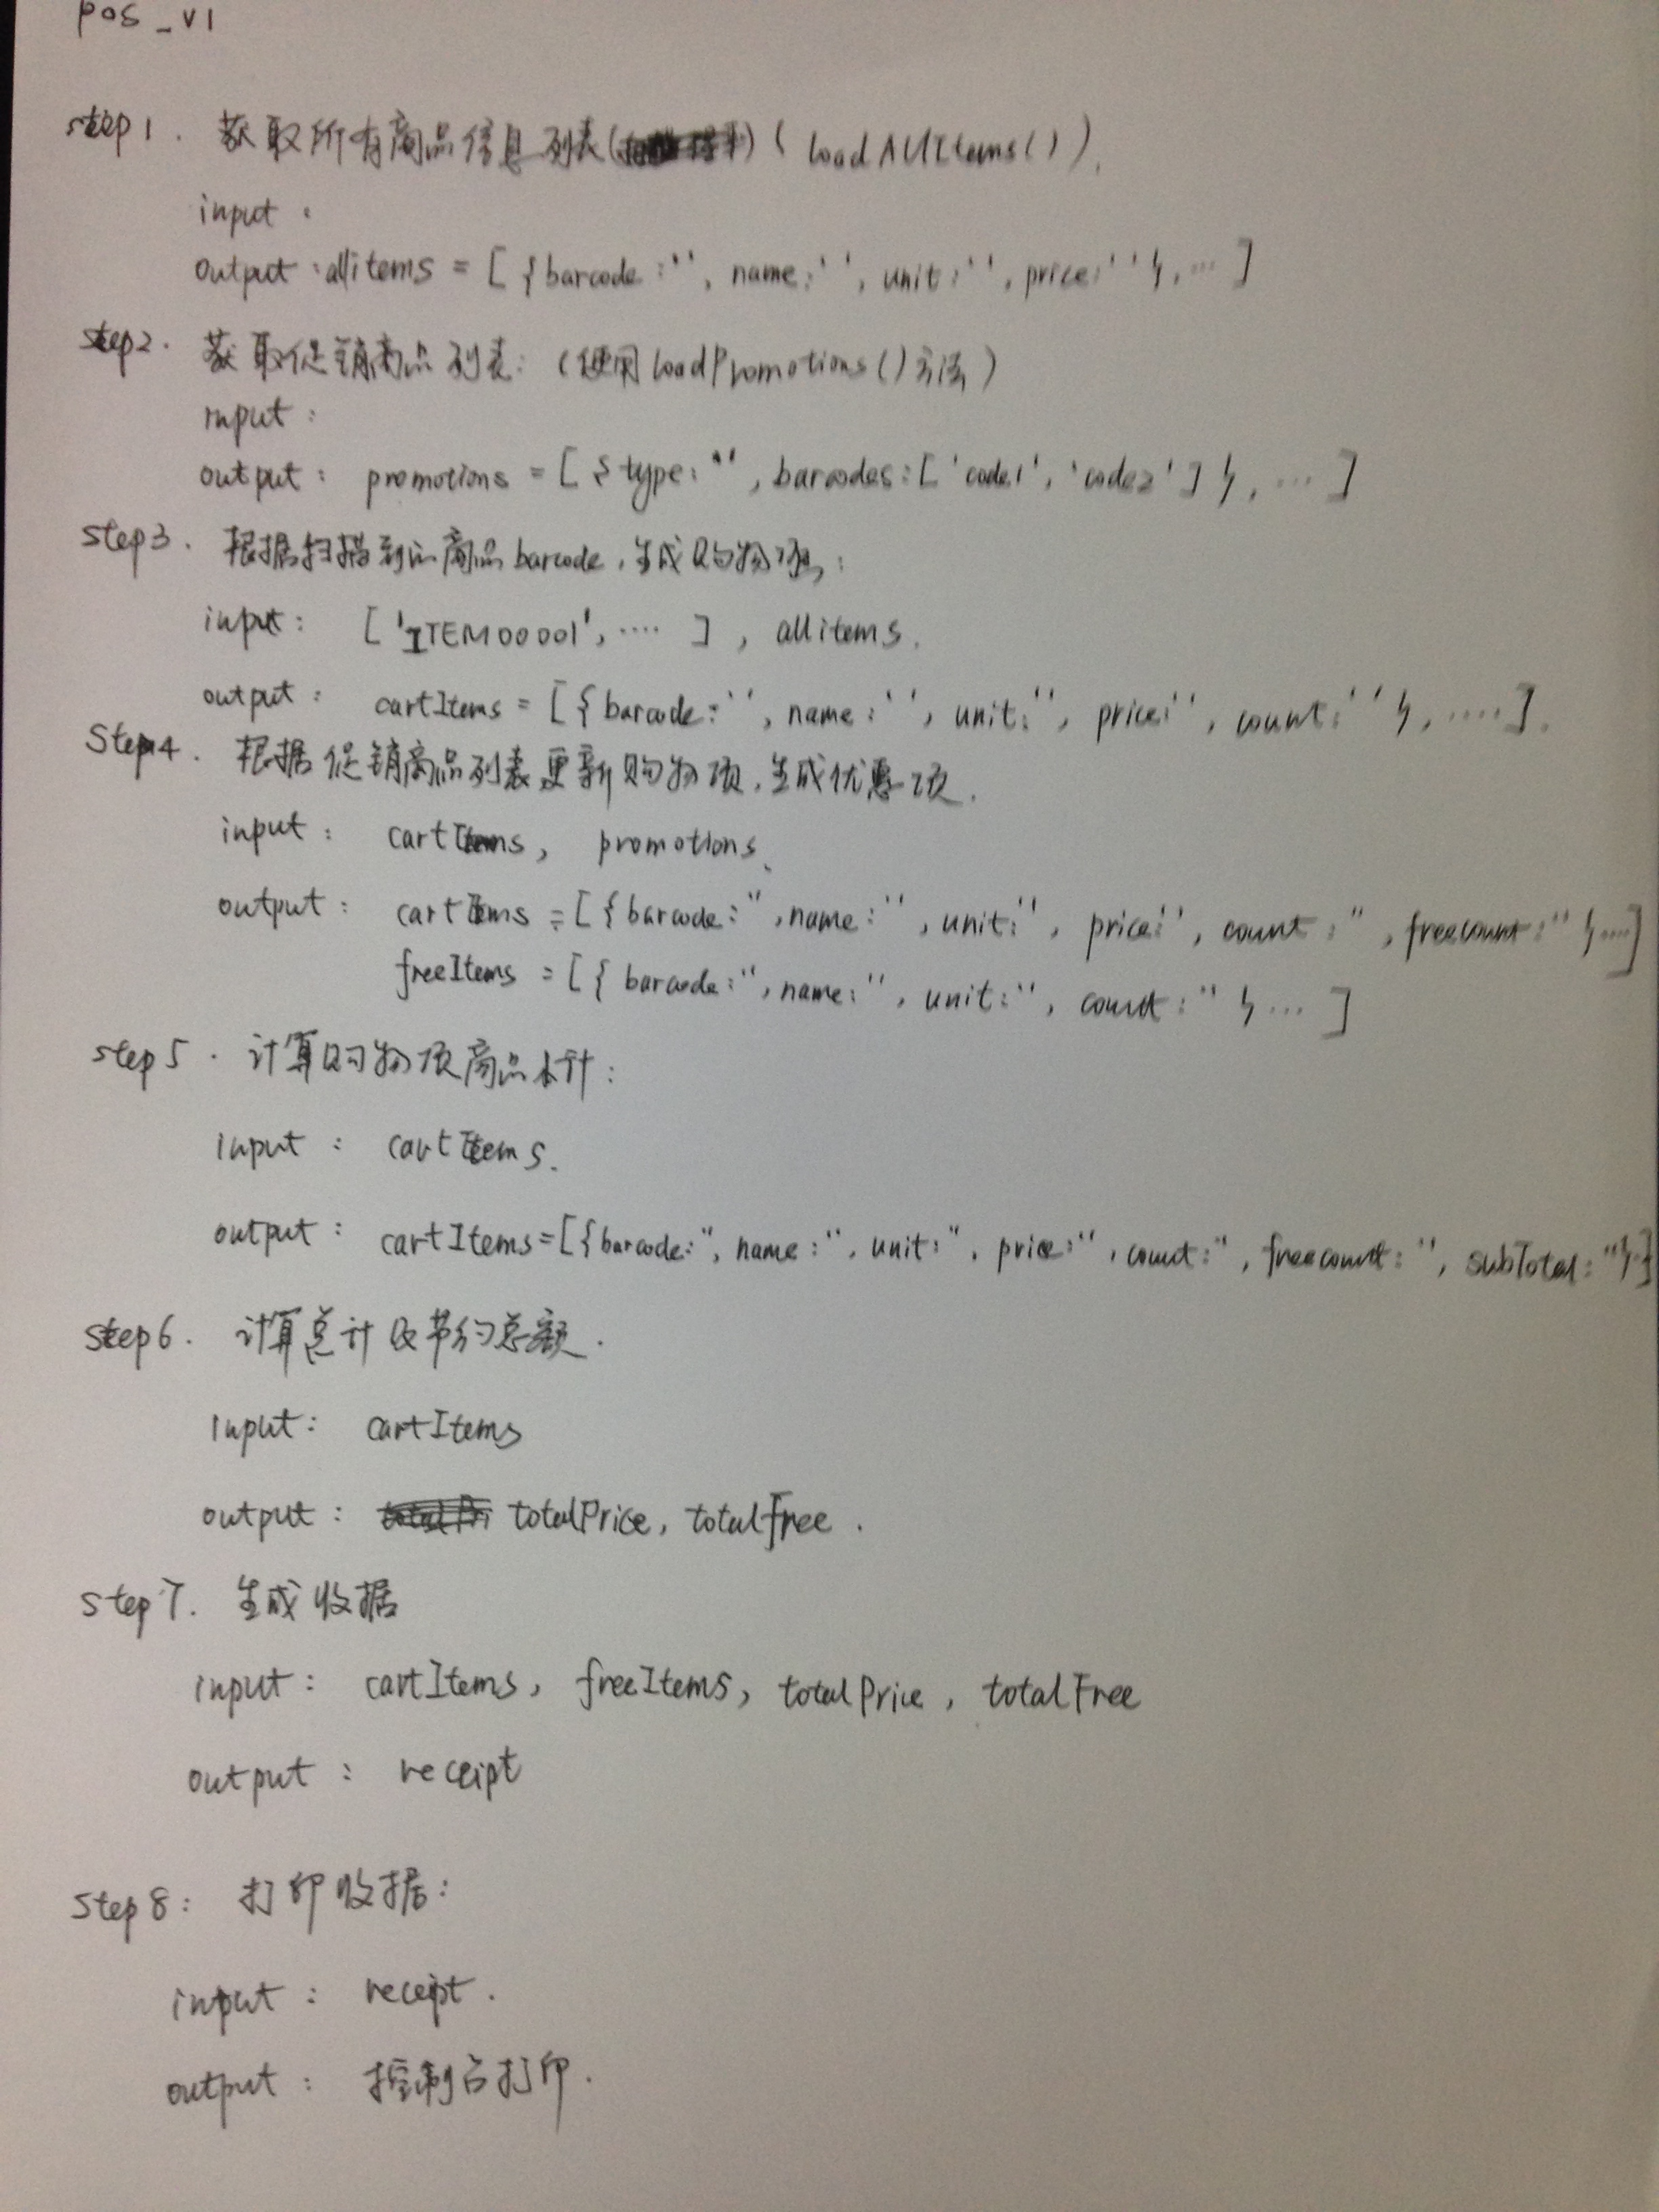 pos_v1
step1. 获取所有商品信息列表 ( loadAllItems() ).
input :
output : allitems = [ {barcode :'', name:'', unit:'', price:''},... ]
step2. 获取促销商品列表: (使用loadPromotions()方法)
input :
output : promotions = [ {type:'', barcodes:['code1', 'code2'] }, ... ]
step3. 根据扫描到的商品barcode,生成购物项:
input : [ 'ITEM00001', .... ] , allitems.
output : cartItems = [ { barcode:'', name:'', unit:'', price:'', count:''}, .... ].
Step4. 根据促销商品列表更新购物项,生成优惠项.
input : cartItems, promotions.
output : cartItems = [ { barcode:'', name:'', unit:'', price:'', count:'', freecount:''}....]
freeItems = [ { barcode:'', name:'', unit:'', count:'' }... ]
step5. 计算购物项商品小计:
input : cartItems.
output : cartItems=[{barcode:'', name:'', unit:'', price:'', count:'', freecount:'', subTotal:''}.]
Step6. 计算总计及节约总额.
input : cartItems
output : totalPrice, totalfree .
Step7. 生成收据
input : cartItems, freeItems, totalPrice, totalFree
output : receipt
Step8: 打印收据:
input : receipt.
output : 控制台打印.